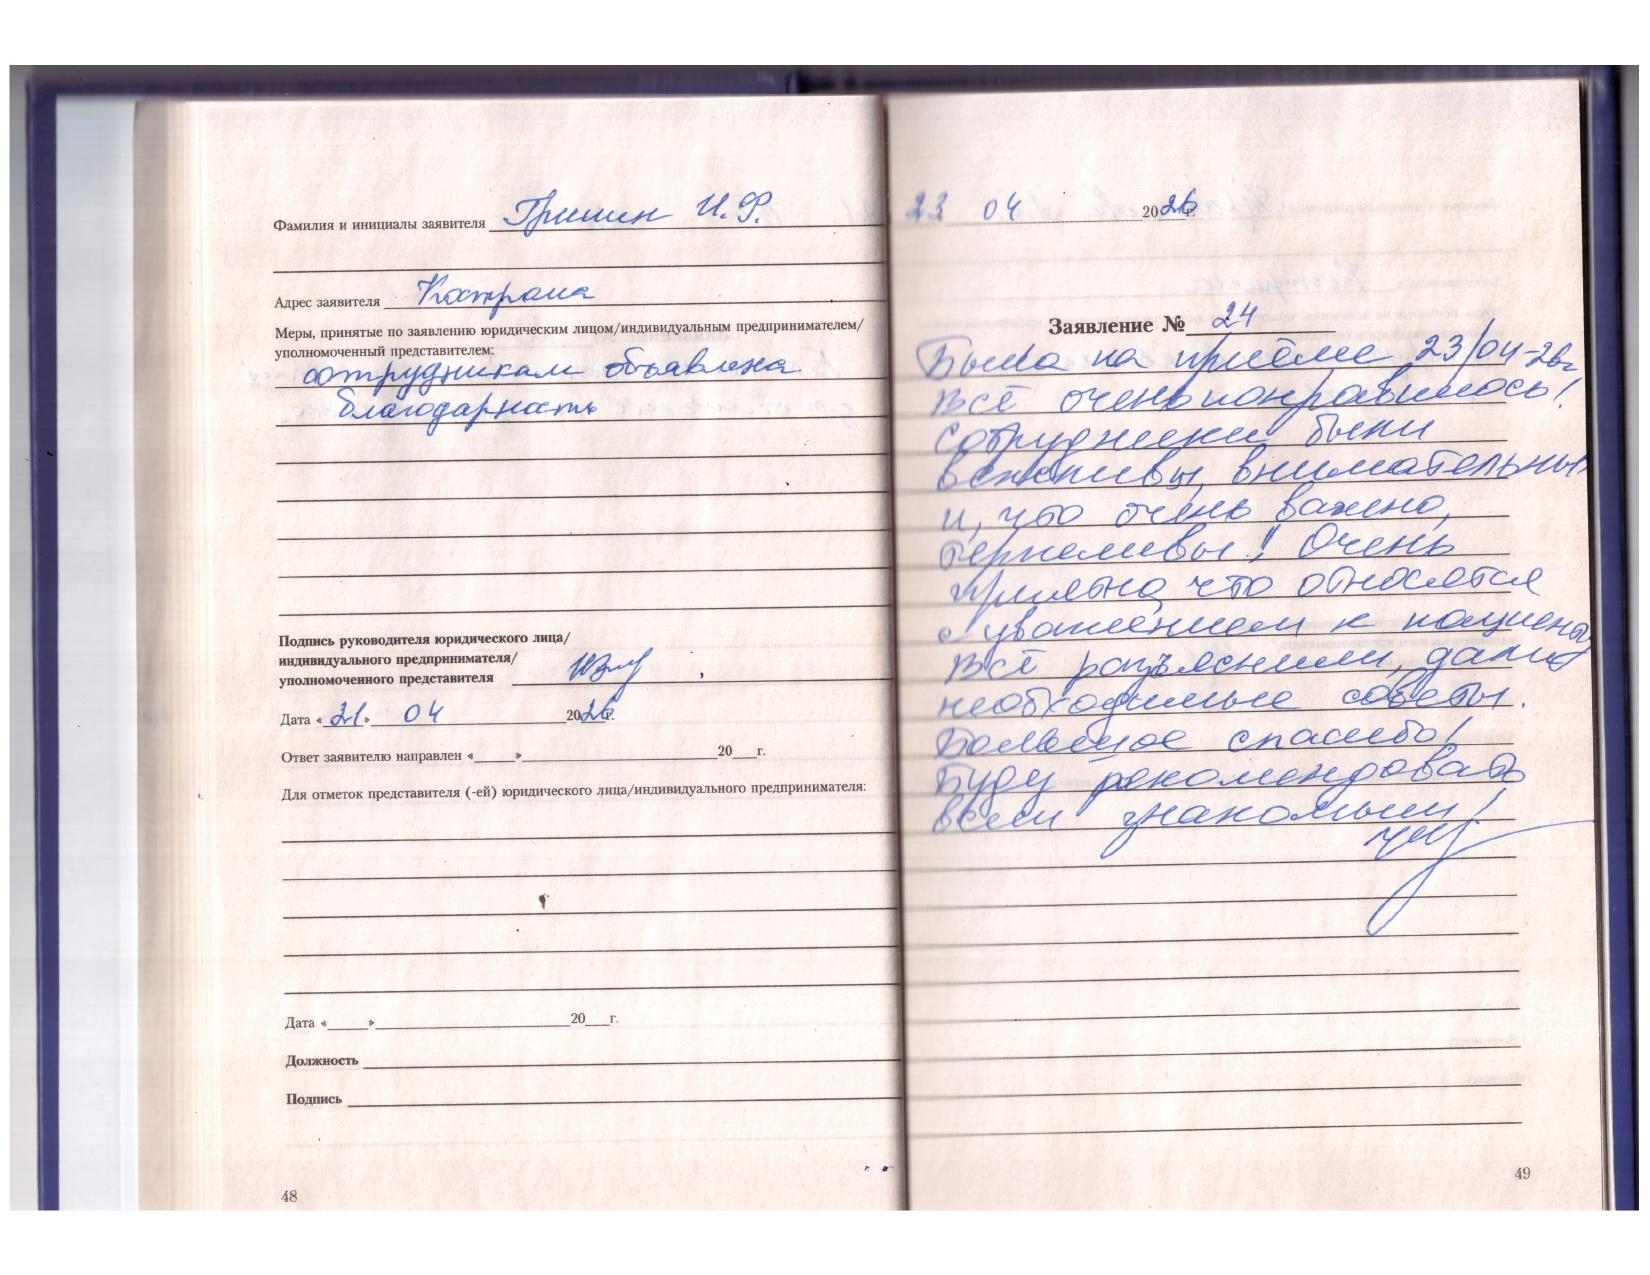 Фамилия и инициалы заявителя Гришин И.Ф.
Адрес заявителя Кострома
Меры, принятые по заявлению юридическим лицом/индивидуальным предпринимателем/
уполномоченный представителем:
сотрудникам объявлена
благодарность
Подпись руководителя юридического лица/
индивидуального предпринимателя/
уполномоченного представителя
Дата «21» 04 2026г.
Ответ заявителю направлен «____»____ 20__г.
Для отметок представителя (-ей) юридического лица/индивидуального предпринимателя:
Дата «____»____ 20__г.
Должность
Подпись
48
23 04 2026г.
Заявление № 24
Была на приёме 23/04-26г
Всё очень понравилось!
Сотрудники были
вежливы, внимательны
и, что очень важно,
терпеливы! Очень
приятно, что относятся
с уважением к пациенту
Всё разъяснили, дали
необходимые советы.
Большое спасибо!
Буду рекомендовать
всем знакомым!
49